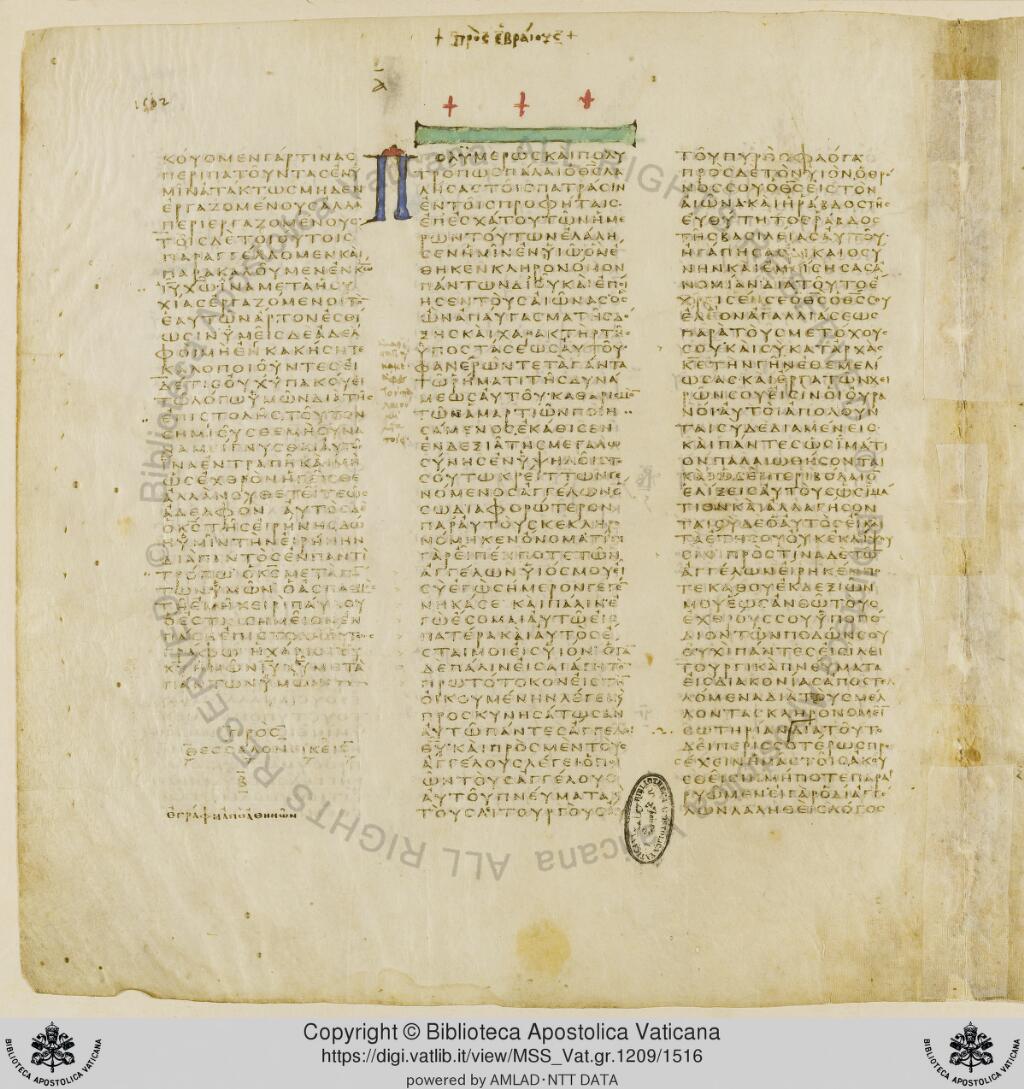 + πρὸς ἑβραίους +
1512
κουομεν γαρ τινας
περιπατουντας εν υ
μιν ατακτως μηδεν
εργαζομενους αλλα
περιεργαζομενους
τοις δε τοιουτοις
παραγγελλομεν και
παρακαλουμεν εν κω
ιυ χω ινα μετα ησυ
χιας εργαζομενοι το
εαυτων αρτον εσθι
ωσιν υμεις δε αδελ
φοι μη ενκακησητε
καλοποιουντες ει
δε τις ουχ υπακουει
τω λογω υμων δια της
επιστολης τουτον
σημιουσθε μη συνα
ναμιγνυσθαι αυτω
ινα εντραπη και μη
ως εχθρον ηγεισθε
αλλα νουθετειτε ως
αδελφον αυτος δε
ο κς της ειρηνης δω
η υμιν την ειρηνην
δια παντος εν παντι
τροπω ο κς μετα παν
των υμων ο ασπασμος
τη εμη χειρι παυλου
ο εστιν σημειον εν
παση επιστολη ουτως
γραφω η χαρις του
κυ ημων ιυ χυ μετα
παντων υμων
προς
θεσσαλονικεις
β
ἐγράφη ἀπὸ ἀθηνῶν
α
πολυμερως και πολυ
τροπως παλαι ο θς λα
λησας τοις πατρασιν
εν τοις προφηταις
επ εσχατου των ημε
ρων τουτων ελαλη
σεν ημιν εν υιω ον ε
θηκεν κληρονομον
παντων δι ου και εποι
ησεν τους αιωνας ος
ων απαυγασμα της δο
ξης και χαρακτηρ της
υποστασεως αυτου
φανερων τε τα παντα
τω ρηματι της δυνα
μεως αυτου καθαρισμο
των αμαρτιων ποιη
σαμενος εκαθισεν
εν δεξια της μεγαλω
συνης εν υψηλοις το
σουτω κρειττων γε
νομενος αγγελων ο
σω διαφορωτερον
παρ αυτους κεκληρο
νομηκεν ονομα τινι
γαρ ειπεν ποτε των
αγγελων υιος μου ει
συ εγω σημερον γεγε
ννηκα σε και παλιν ε
γω εσομαι αυτω εις
πατερα και αυτος ε
σται μοι εις υιον οταν
δε παλιν εισαγαγη τον
πρωτοτοκον εις την
οικουμενην λεγει
προσκυνησατωσαν
αυτω παντες αγγελοι
θυ και προς μεν τους
αγγελους λεγει ο ποι
ων τους αγγελους
αυτου πνευματα
τους λειτουργους
του πυρος φλογα
προς δε τον υιον ο θρο
νος σου ο θς εις τον
αιωνα και η ραβδος της
ευθυτητος ραβδος
της βασιλειας αυτου
ηγαπησας δικαιοσυ
νην και εμισησας α
νομιαν δια τουτο ε
χρισεν σε ο θς ο θς σου
ελεον αγαλλιασεως
παρα τους μετοχους
σου και συ κατ αρχας
κε την γην εθεμελι
ωσας και εργα των χει
ρων σου εισιν οι ουρα
νοι αυτοι απολουν
ται συ δε διαμενεις
και παντες ως ιματι
ον παλαιωθησονται
και ωσει περιβολαιο
ελιξεις αυτους ως ιμα
τιον και αλλαγησον
ται συ δε ο αυτος ει και
τα ετη σου ουκ εκλειψου
σιν προς τινα δε των
αγγελων ειρηκεν πο
τε καθου εκ δεξιων
μου εως αν θω τους
εχθρους σου υποπο
διον των ποδων σου
ουχι παντες εισι λει
τουργικα πνευματα
εις διακονιας αποστελ
λομενα δια τους μελ
λοντας κληρονομειν
σωτηριαν δια τουτο
δει περισσοτερως προ
σεχειν ημας τοις ακου
σθεισι μηποτε παρα
ρυωμεν ει γαρ ο δι αγγε
λων λαληθεις λογος
Copyright © Biblioteca Apostolica Vaticana
https://digi.vatlib.it/view/MSS_Vat.gr.1209/1516
powered by AMLAD·NTT DATA
BIBLIOTECA APOSTOLICA VATICANA
BIBLIOTECA APOSTOLICA VATICANA